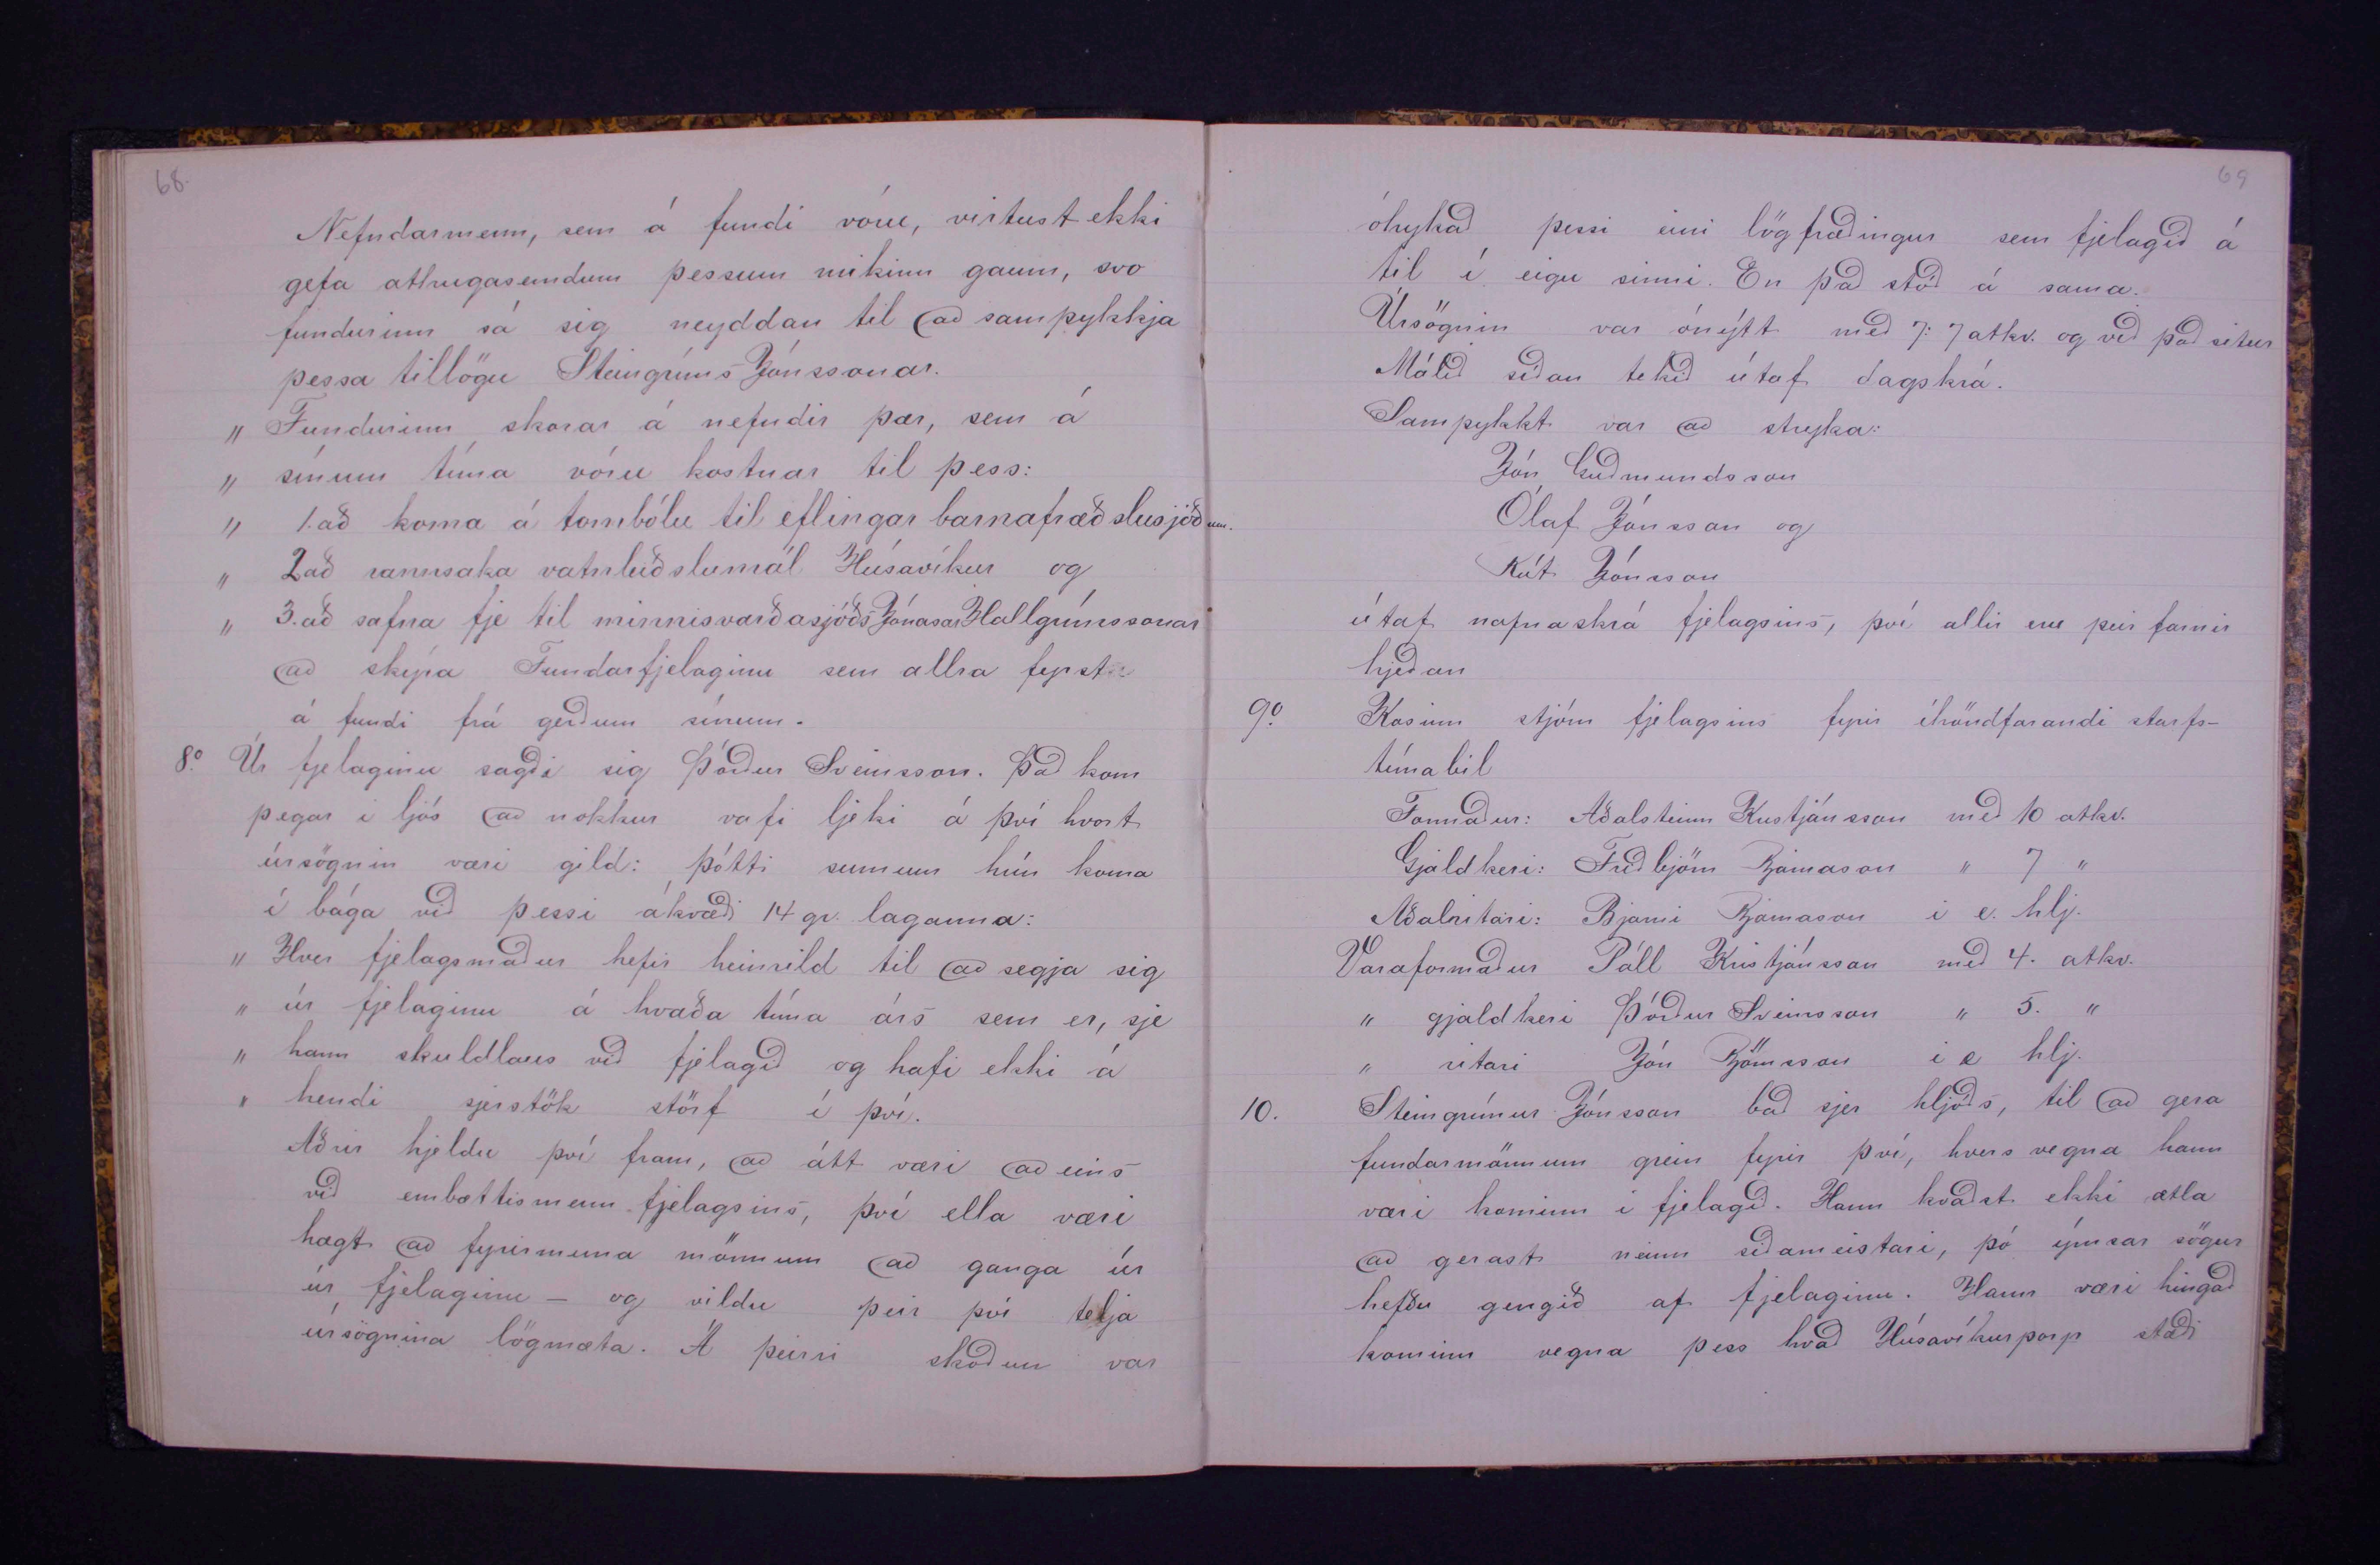 68.
Nefndarmenn, sem á fundi vóru, virtust ekki
gefa athugasemdum þessum mikinn gaum, svo
fundurinn sá sig neyddan til að samþykkja
þessa tillögu Steingríms Jónssonar.
„ Fundurinn skorar á nefndir þær, sem á
„ sínum tíma vóru kostnar til þess:
„ 1. að koma á tombólu til eflingar barnafræðslusjóðnum.
„ 2 að rannsaka vatnleiðslumál Húsavíkur og
„ 3. að safna fje til minnisvarðasjóðs Jónasar Hallgrímssonar
að skýra Fundarfjelaginu sem allra fyrst
á fundi frá gerðum sínum.
8.o Úr fjelaginu sagði sig Þórður Sveinsson. Það kom
þegar i ljós að nokkur vafi ljeki á því hvort
úrsögnin væri gild: þótti sumum hún koma
í bága við þessi ákvæði 14 gr. laganna:
„ Hver fjelagsmaður hefir heimild til að segja sig
„ úr fjelaginu á hvaða tíma árs sem er, sje
„ hann skuldlaus við fjelagið og hafi ekki á
„ hendi sjerstök störf í því.
Aðrir hjeldu því fram, að átt væri að eins
við embættismenn fjelagsins, því ella væri
hægt að fyrirmuna mönnum að ganga úr
úr fjelaginu – og vildu þeir því telja
úrsögnina lögmæta. Á þeirri skoðun var
69
óhykað þessi eini lögfræðingur sem fjelagið á
til í eigu sinni. En það stóð á sama.
Úrsögnin var ónýtt með 7: 7 atkv. og við það situr
Málið síðan tekið útaf dagskrá.
Samþykkt var að stryka:
Jón Guðmundsson
Ólaf Jónsson og
Kát Jónsson
útaf nafnaskrá fjelagsins, því allir eru þeir farnir
hjeðan
9.o Kosinn stjórn fjelagsins fyrir íhöndfarandi starfs-
tímabil
Formaður: Aðalsteinn Kristjánsson með 10 atkv.
Gjaldkeri: Friðbjörn Bjarnason „ 7 „
Aðalritari: Bjarni Bjarnason i e. hlj.
Varaformaður Páll Kristjánsson með 4. atkv.
„ gjaldkeri Þórður Sveinsson „ 5. „
„ ritari Jón Björnsson i e hlj.
10. Steingrímur Jónsson bað sjer hljóðs, til að gera
fundarmönnum grein fyrir því, hvers vegna hann
væri kominn i fjelagið. Hann kvaðst ekki ætla
að gerast neinn siðameistari, þó ýmsar sögur
hefðu gengið af fjelaginu. Hann væri hingað
kominn vegna þess hvað Húsavíkurþorp stæði